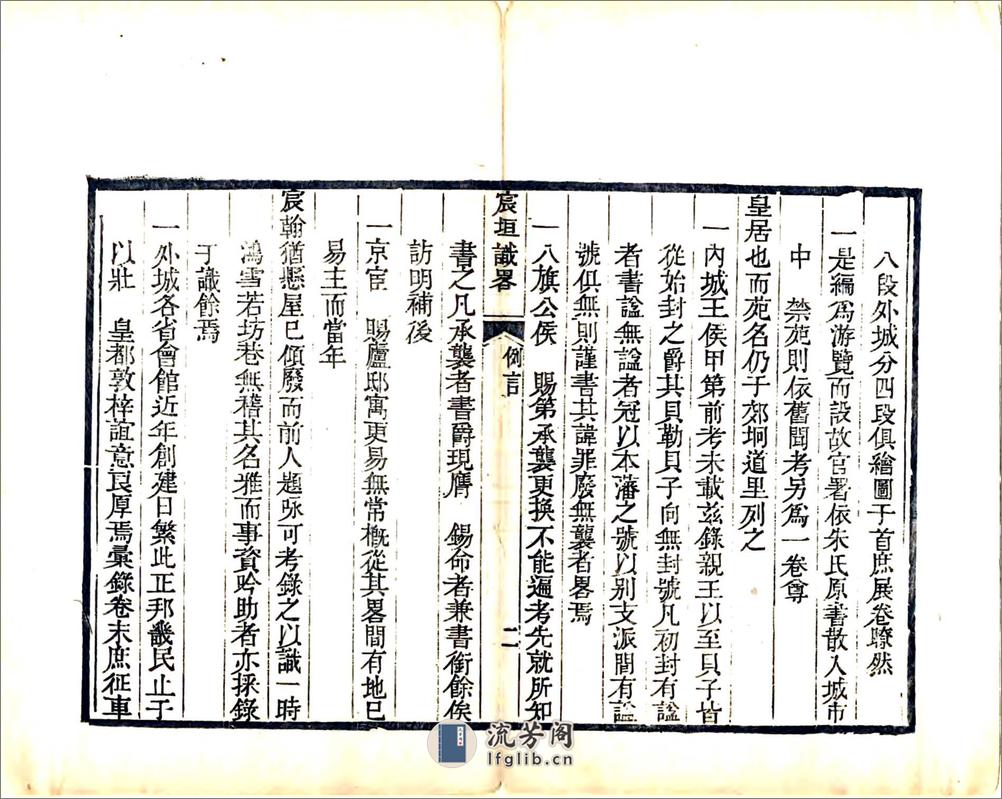 八段外城分四段俱繪圖于首庶展卷瞭然
一是編爲游覽而設故官署依朱氏原書散入城市
中　禁苑則依舊聞考另爲一卷尊
皇居也而苑名仍于郊坰道里列之
一內城王侯甲第前考未載兹錄親王以至貝子皆
從始封之爵其貝勒貝子向無封號凡初封有諡
者書諡無諡者冠以本藩之號以别支派間有諡
號俱無則謹書其諱罪廢無襲者畧焉
一八旗公侯　賜第承襲更換不能遍考先就所知
宸垣識畧
例言
二
書之凡承襲者書爵現膺　錫命者兼書銜餘俟
訪明補後
一京宦　賜廬邸寓更易無常概從其畧間有地已
易主而當年
宸翰猶懸屋已傾廢而前人題咏可考錄之以識一時
鴻雪若坊巷無稽其名雅而事資吟助者亦採錄
于識餘焉
一外城各省會館近年創建日繁此正邦畿民止于
以壯　皇都敦梓誼意良厚焉彙錄卷末庶征車
流芳阁
lfglib.cn